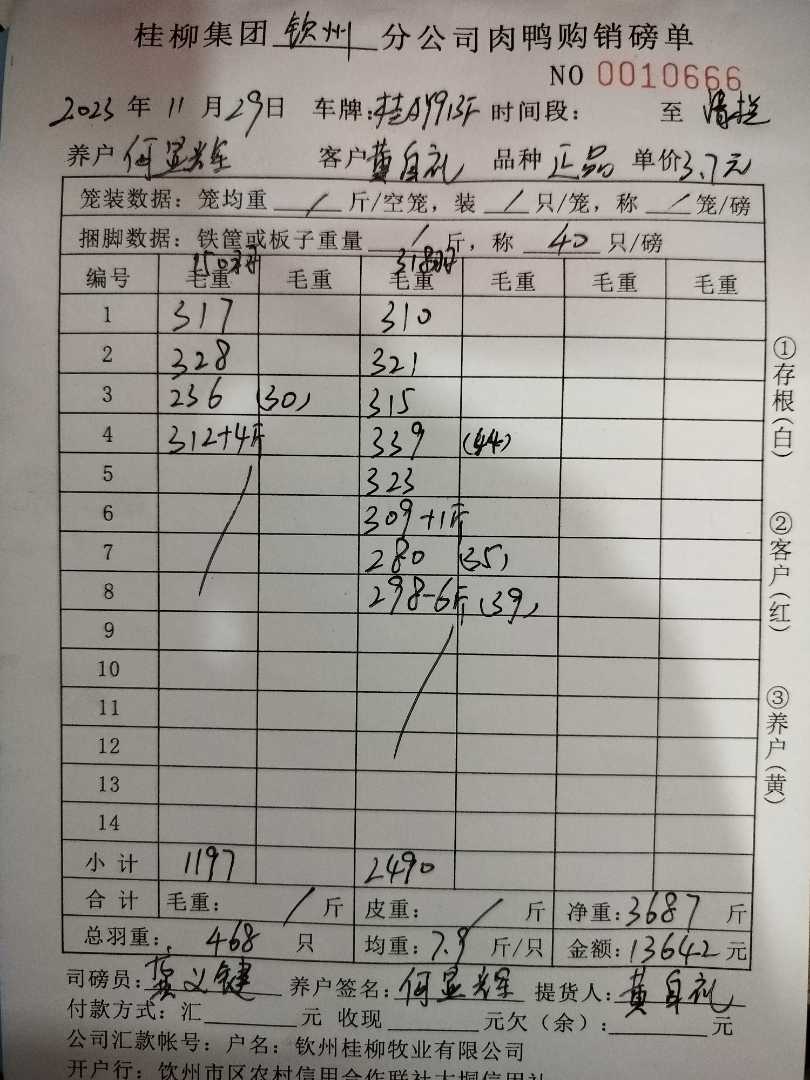 桂柳集团 钦州 分公司肉鸭购销磅单
NO 0010666
2023 年 11 月 29 日 车牌: 时间段: 至 清栏
养户 何显辉 客户 黄自礼 品种 正品 单价 3.7元
笼装数据: 笼均重 / 斤/空笼, 装 / 只/笼, 称 / 笼/磅
捆脚数据: 铁筐或板子重量 / 斤, 称 40 只/磅
150羽 318羽
编号 毛重 毛重 毛重 毛重 毛重 毛重
1 317 310
2 328 321
3 236 (30) 315
4 312+4斤 339 (44)
5 323
6 309+1斤
7 280 (35)
8 298-6斤 (39)
9
10
11
12
13
14
小计 1197 2490
合计 毛重: / 斤 皮重: / 斤 净重: 3687 斤
总羽重: 468 只 均重: 7.9 斤/只 金额: 13642 元
司磅员: 养户签名: 何显辉 提货人: 黄自礼
付款方式: 汇 元 收现 元欠(余): 元
公司汇款帐号: 户名: 钦州桂柳牧业有限公司
开户行: 钦州市区农村信用合作联社大垌信用社
①存根(白)
②客户(红)
③养户(黄)